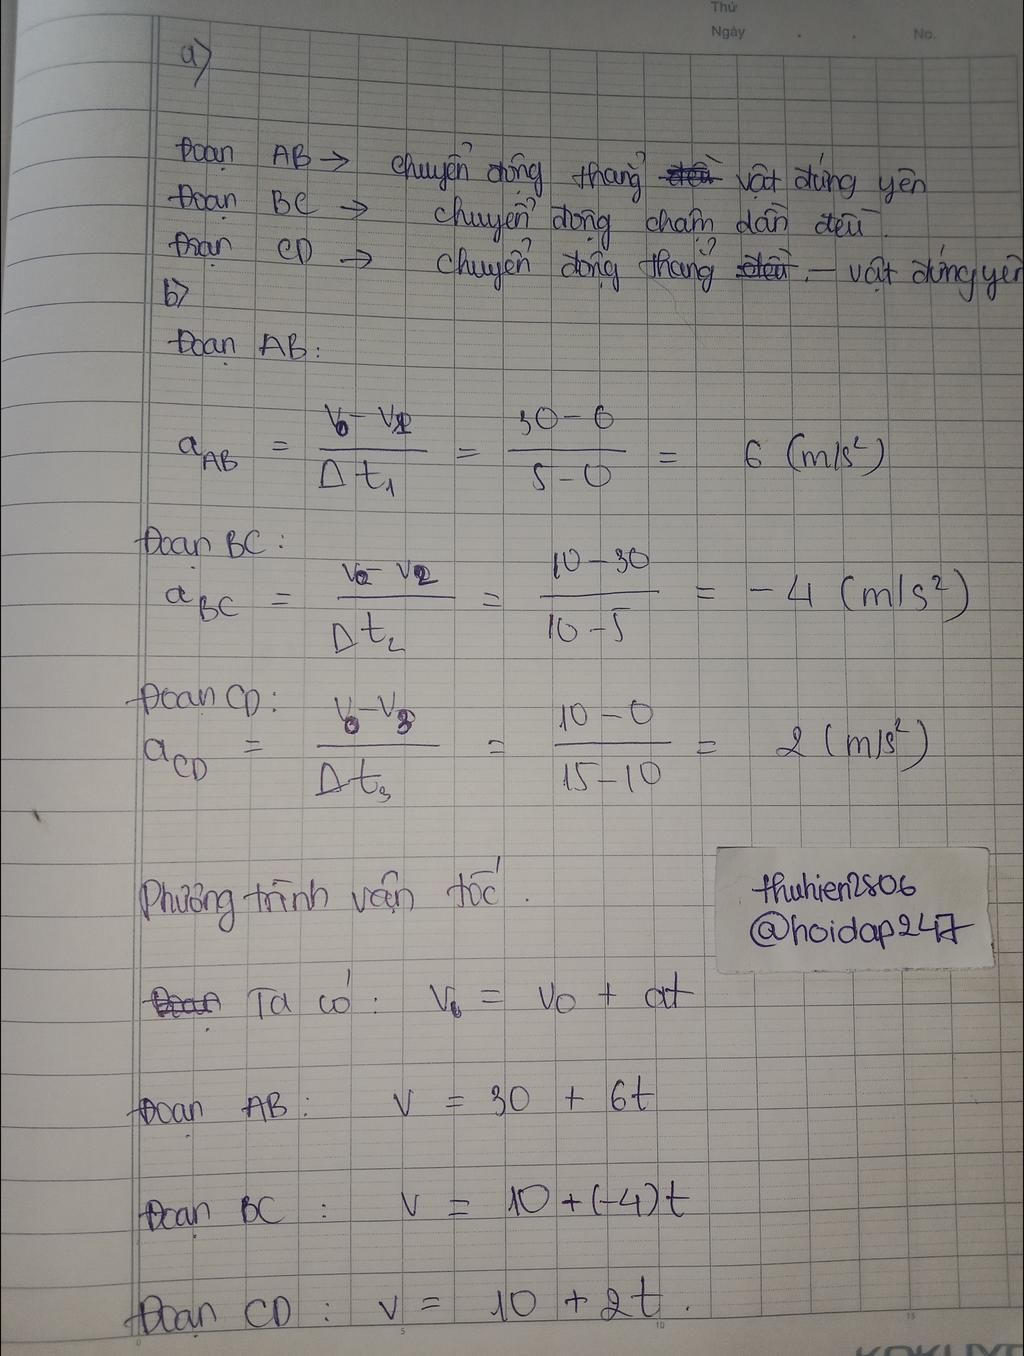 Thứ
Ngày . . No.
a)
Đoạn AB → chuyển động thẳng đều vật đứng yên
Đoạn BC → chuyển động chậm dần đều.
Đoạn CD → chuyển động thẳng đều. – vật đứng yên
b)
Đoạn AB:
a_AB = (v₀ - v₁)/(Δt₁) = (30 - 0)/(5 - 0) = 6 (m/s²)
Đoạn BC:
a_BC = (v₀ - v₂)/(Δt₂) = (10 - 30)/(10 - 5) = -4 (m/s²)
Đoạn CD:
a_CD = (v₀ - v₃)/(Δt₃) = (10 - 0)/(15 - 10) = 2 (m/s²)
Phương trình vận tốc.
thuhien2806
@hoidap247
Đoạn Ta có: v₀ = v0 + at
Đoạn AB: v = 30 + 6t
Đoạn BC: v = 10 + (-4)t
Đoạn CD: v = 10 + 2t.
0 5 10 15
KOKUYO